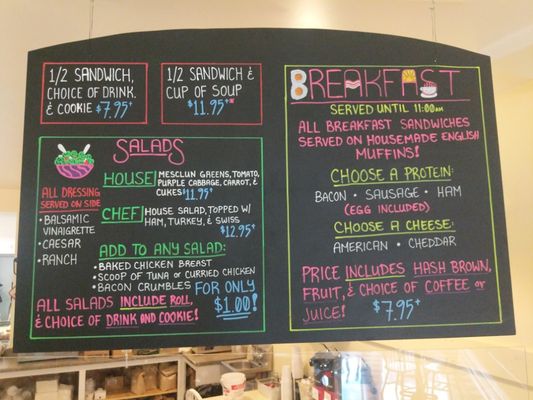 1/2 SANDWICH,
CHOICE OF DRINK.
& COOKIE $7.95+
1/2 SANDWICH &
CUP OF SOUP
$11.95+*
SALADS
HOUSE| MESCLUN GREENS, TOMATO,
PURPLE CABBAGE, CARROT, &
CUKES $11.95+
CHEF| HOUSE SALAD, TOPPED W/
HAM, TURKEY, & SWISS
$12.95+
ALL DRESSING
SERVED ON SIDE
• BALSAMIC
VINAIGRETTE
• CAESAR
• RANCH
ADD TO ANY SALAD:
• BAKED CHICKEN BREAST
• SCOOP OF TUNA or CURRIED CHICKEN
• BACON CRUMBLES
FOR ONLY
$1.00!
ALL SALADS INCLUDE ROLL,
& CHOICE OF DRINK AND COOKIE!
BREAKFAST
SERVED UNTIL 11:00AM
ALL BREAKFAST SANDWICHES
SERVED ON HOUSEMADE ENGLISH
MUFFINS!
CHOOSE A PROTEIN:
BACON • SAUSAGE • HAM
(EGG INCLUDED)
CHOOSE A CHEESE:
AMERICAN • CHEDDAR
PRICE INCLUDES HASH BROWN,
FRUIT, & CHOICE OF COFFEE or
JUICE! $7.95+